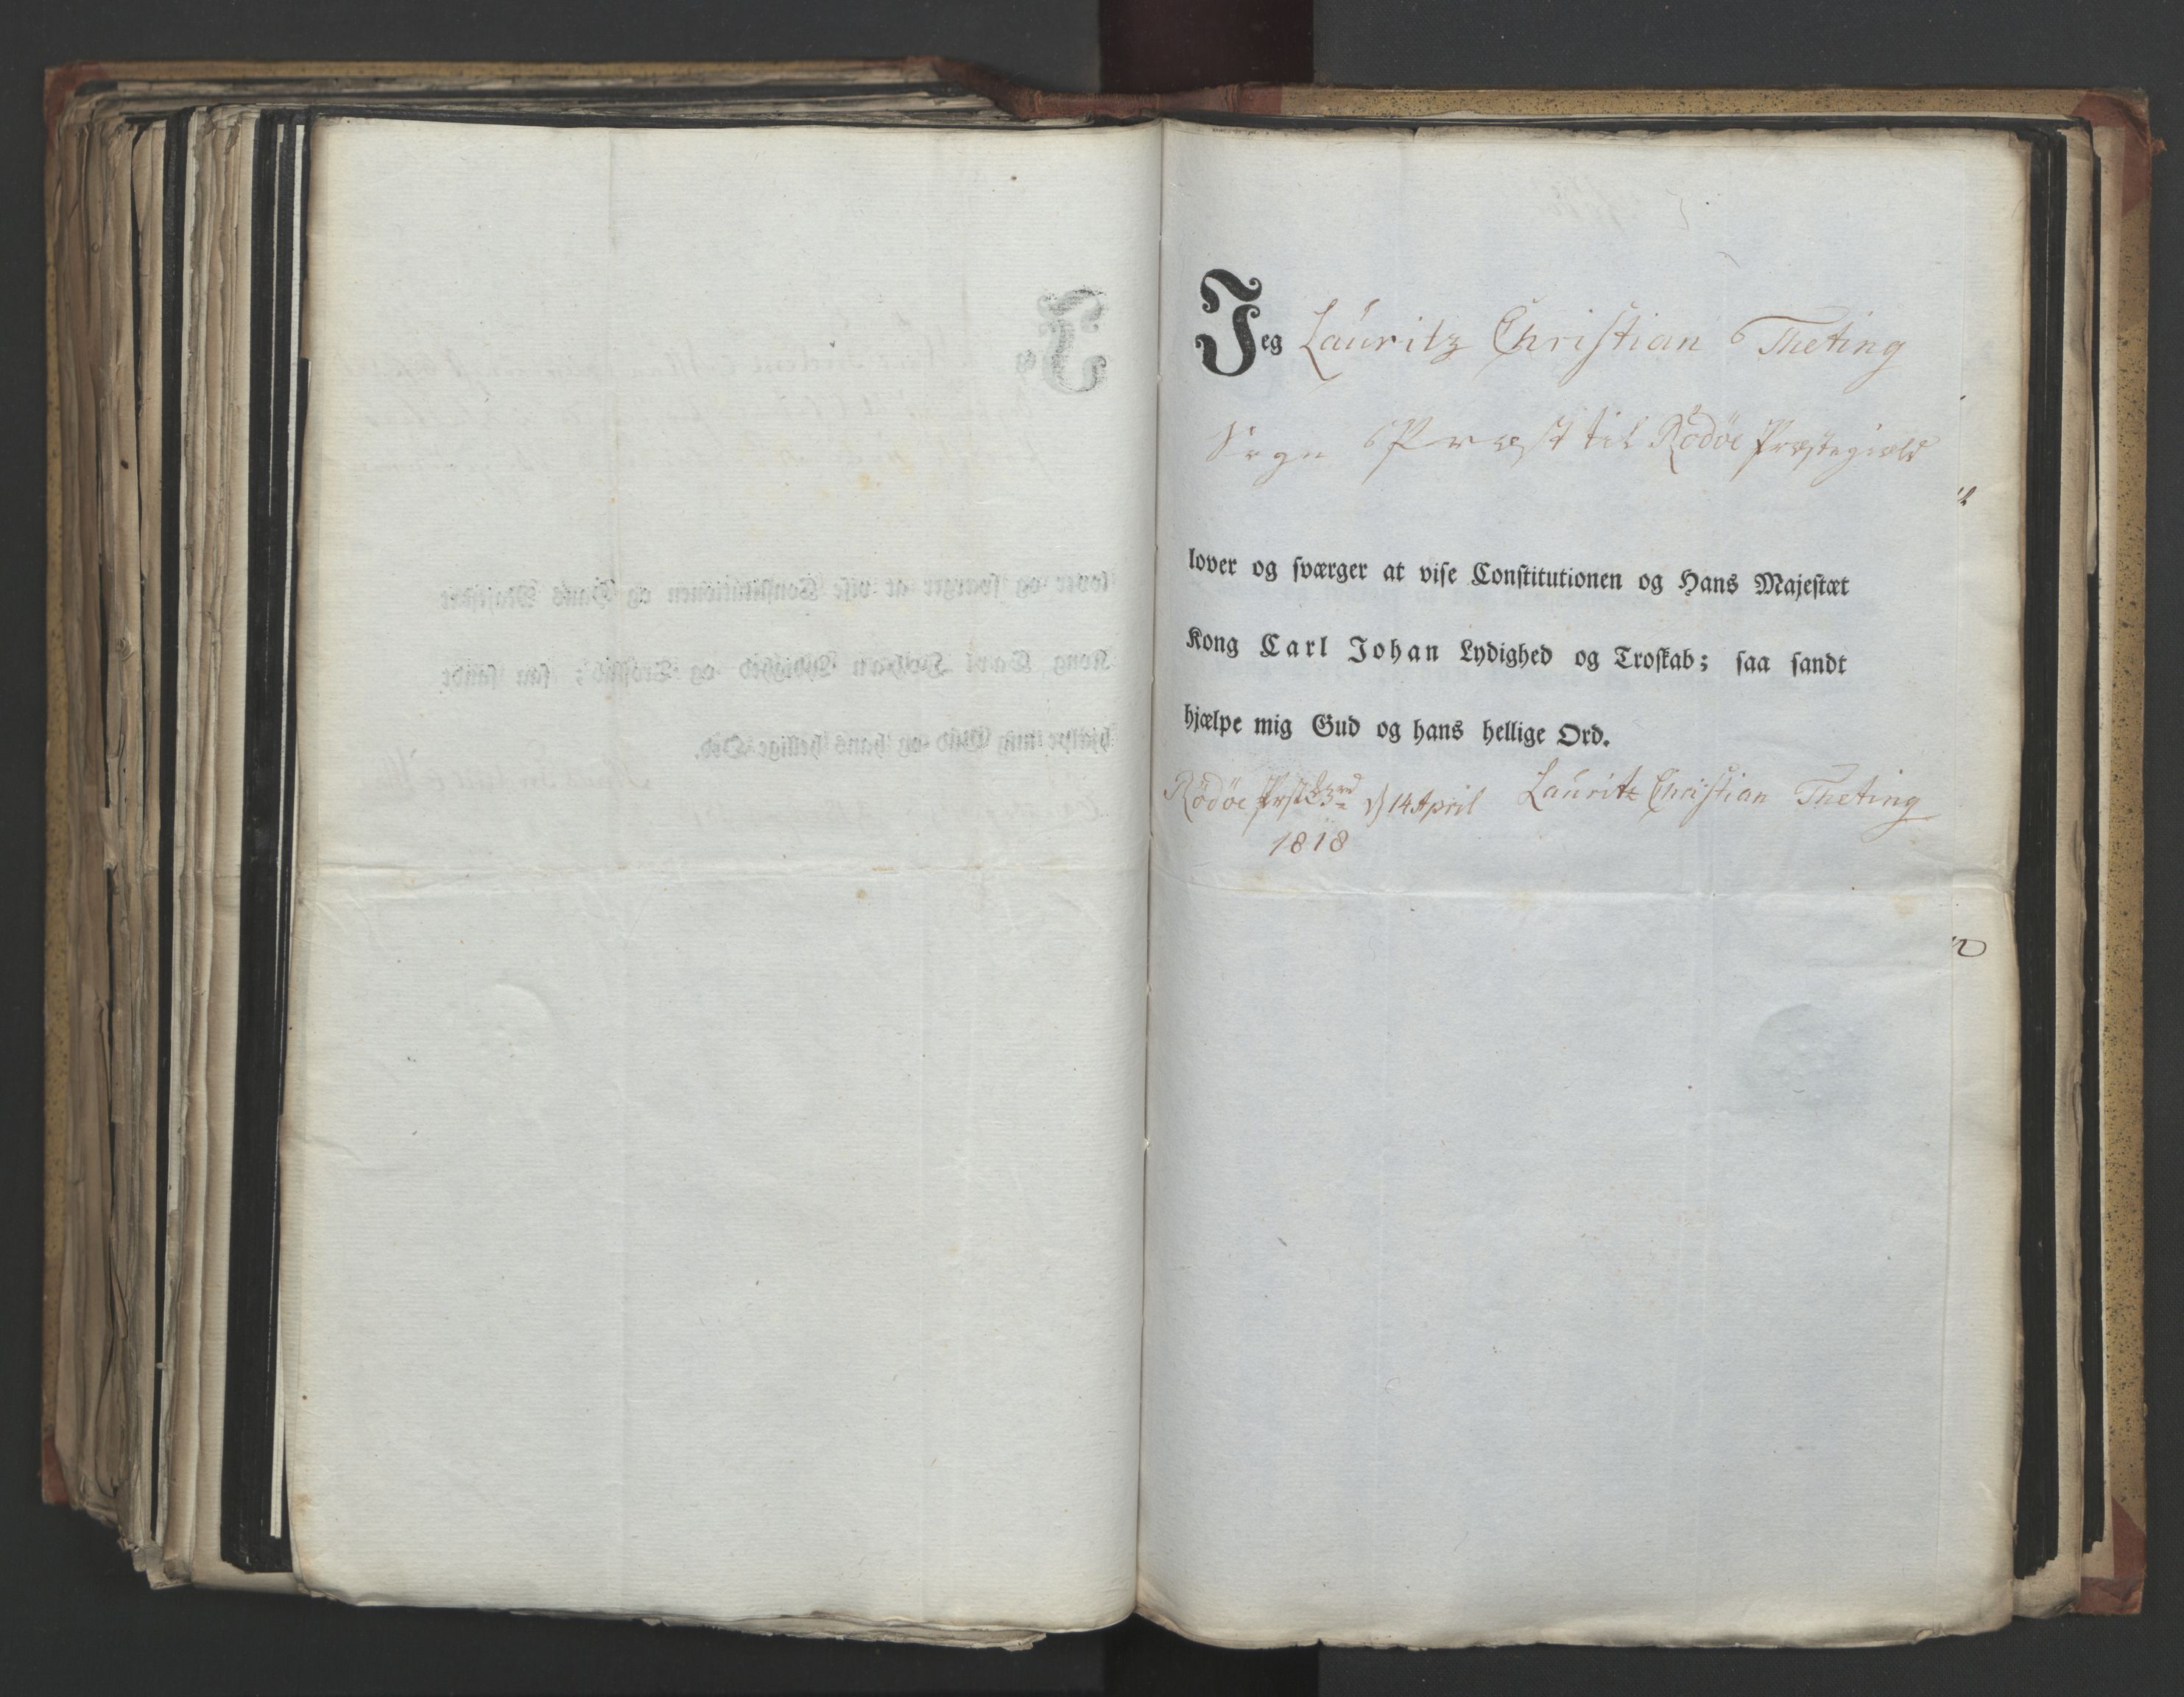 Jeg Lauritz Christian Theting
Sogne Præst til Rödöe Præstegield
lover og sværger at vise Constitutionen og Hans Majestæt
Kong Carl Johan Lydighed og Troskab; saa sandt
hjælpe mig Gud og hans hellige Ord.
Rödöe d 14 April Lauritz Christian Theting
1818